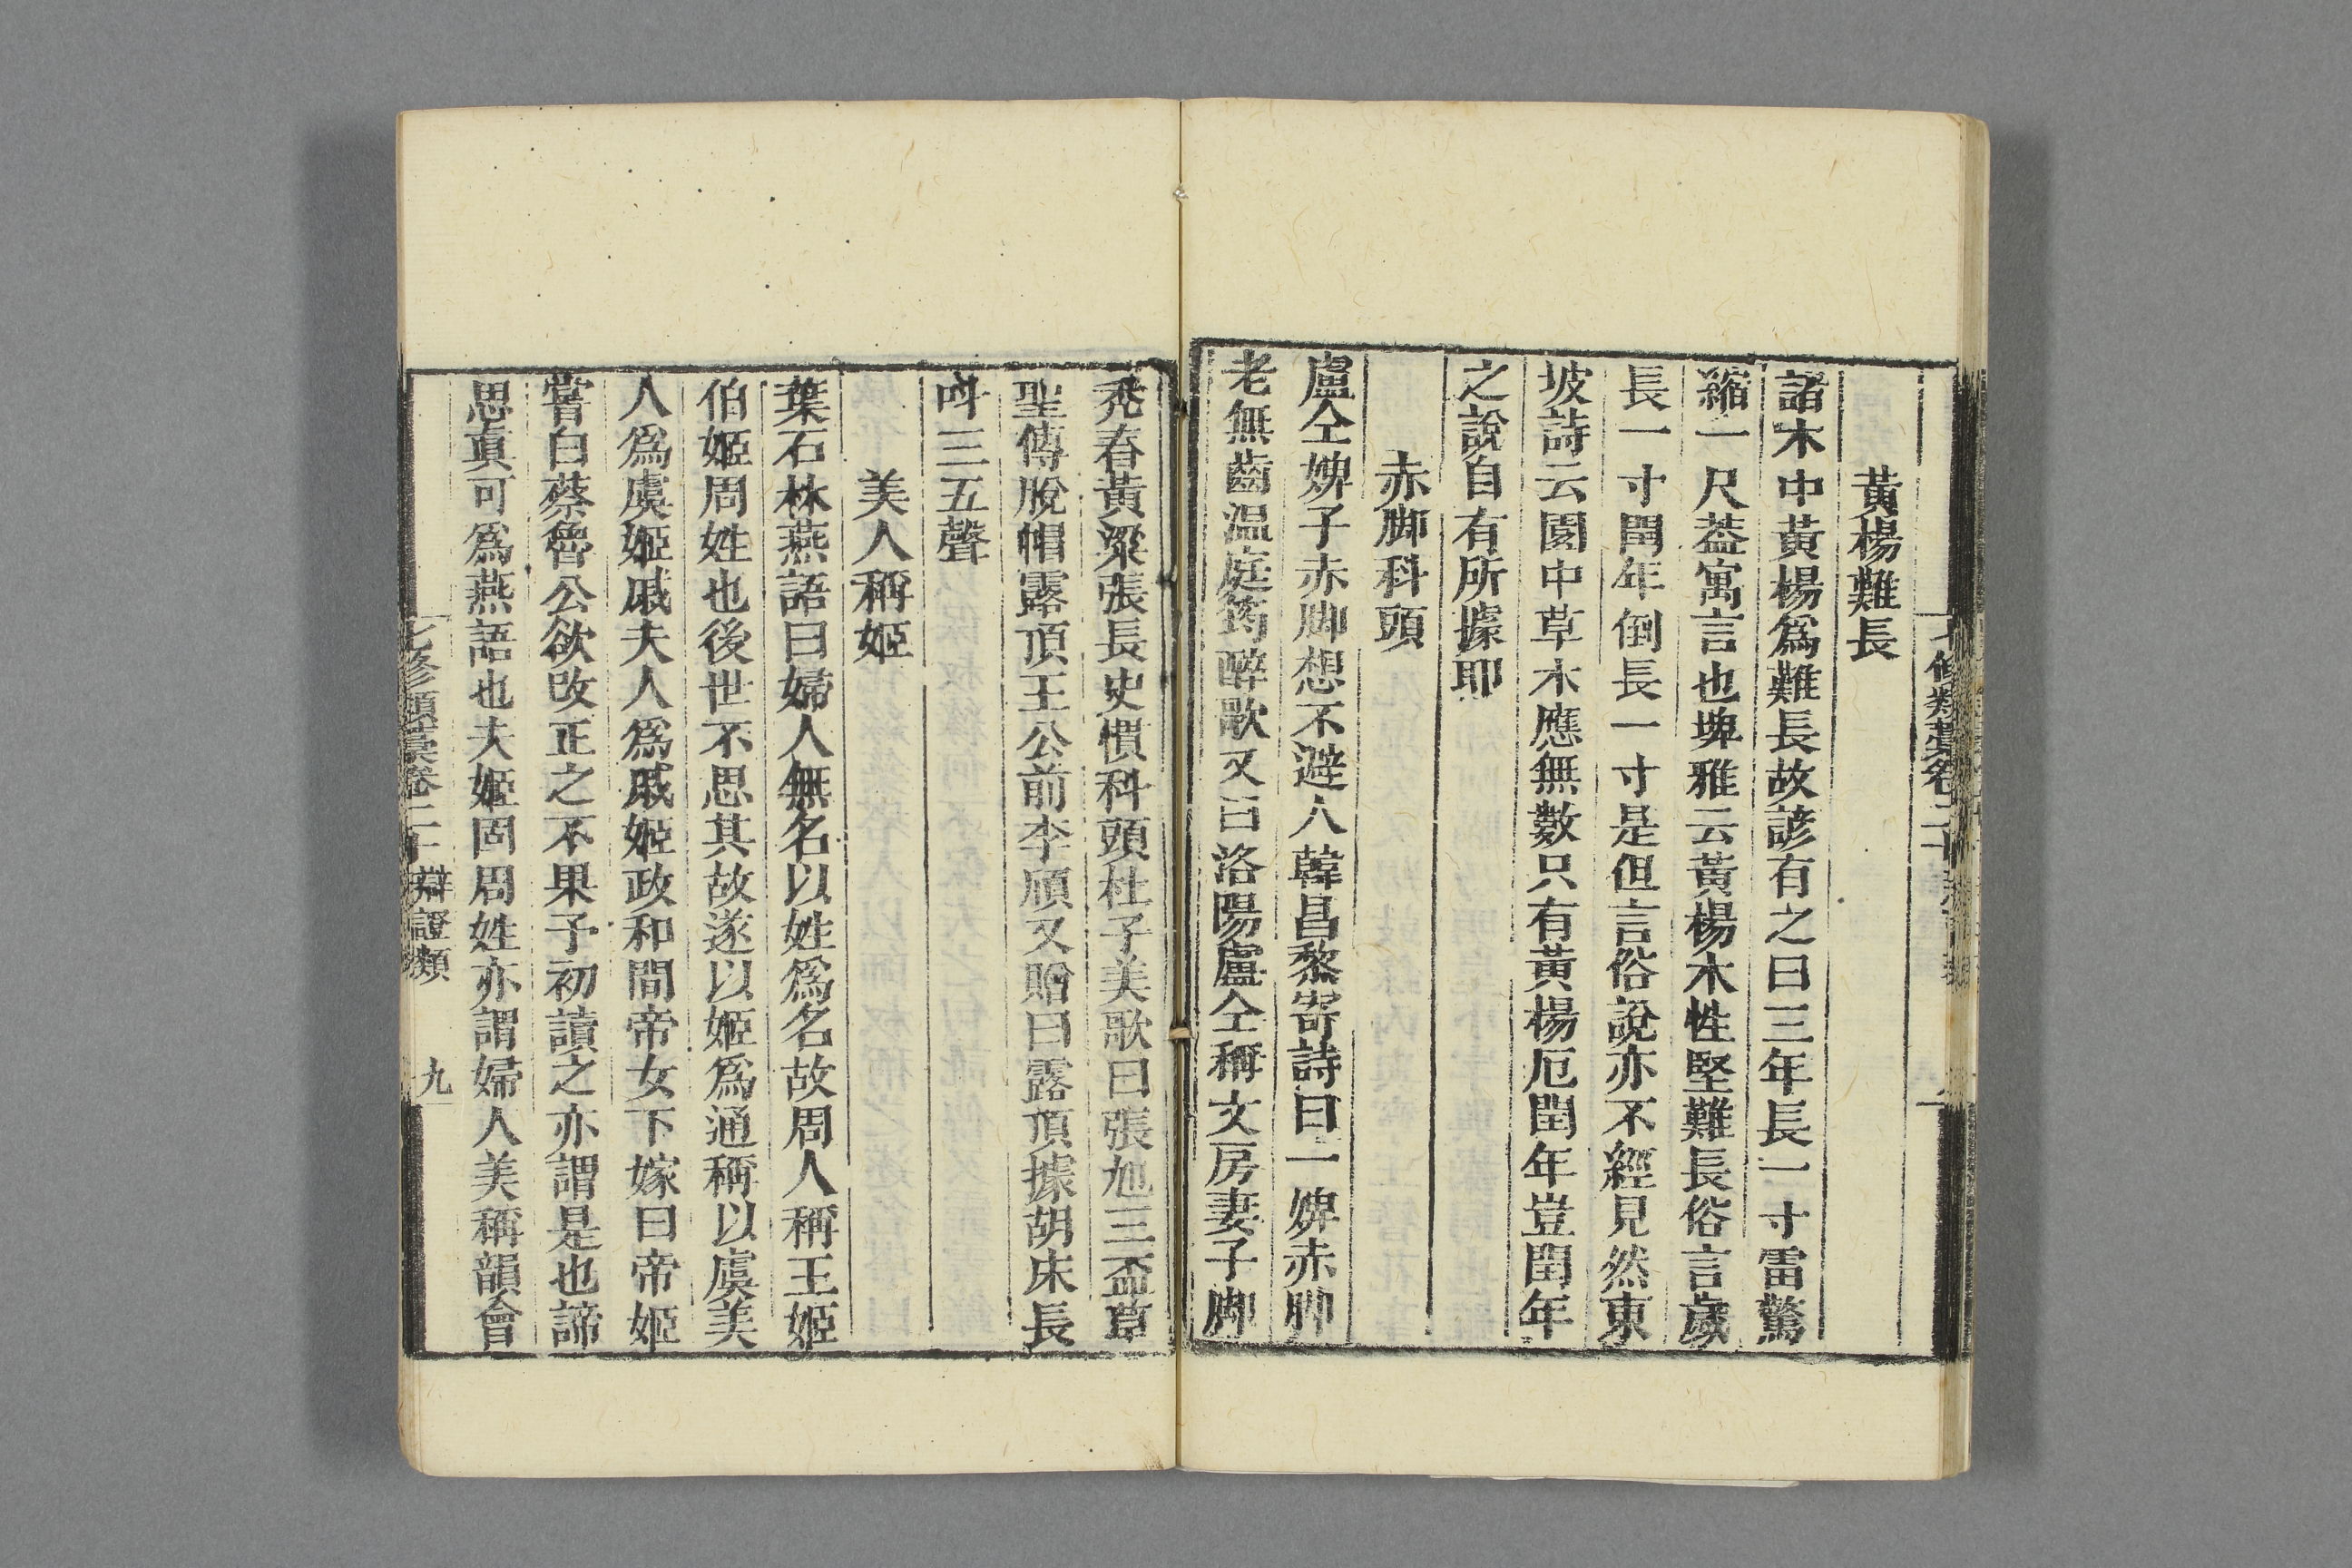 黃楊難長
諸木中黃楊爲難長故諺有之曰三年長一寸雷驚
縮一尺葢寓言也埤雅云黃楊木性堅難長俗言歲
長一寸閏年倒長一寸是但言俗說亦不經見然東
坡詩云園中草木應無數只有黃楊厄閏年豈閏年
之說自有所據耶
赤脚科頭
盧仝婢子赤脚想不避人韓昌黎寄詩曰一婢赤脚
老無齒温庭筠醉歌又曰洛陽盧仝稱文房妻子脚
禿舂黃粱張長史慣科頭杜子美歌曰張旭三盃草
聖傳脫帽露頂王公前李頎又贈曰露頂據胡床長
呌三五聲
美人稱姬
葉石林燕語曰婦人無名以姓爲名故周人稱王姬
伯姬周姓也後世不思其故遂以姬爲通稱以虞美
人爲虞姬戚夫人爲戚姬政和間帝女下嫁曰帝姬
嘗白蔡魯公欲改正之不果予初讀之亦謂是也諦
思眞可爲燕語也夫姬固周姓亦謂婦人美稱韻會
七修類稾卷二十 辯證類 九